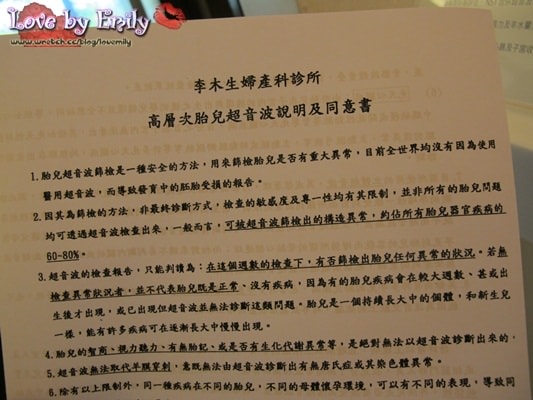 Love by Emily
www.wretch.cc/blog/lovemily
李木生婦產科診所
高層次胎兒超音波說明及同意書
1.胎兒超音波篩檢是一種安全的方法，用來篩檢胎兒是否有重大異常，目前全世界均沒有因為使用
醫用超音波，而導致發育中的胚胎受損的報告。
2.因其為篩檢的方法，非最終診斷方式，檢查的敏感度及專一性均有其限制，並非所有的胎兒問題
均可透過超音波檢查出來，一般而言，可被超音波篩檢出的構造異常，約佔所有胎兒器官疾病的
60-80%。
3.超音波的檢查報告，只能判讀為：在這個週數的檢查下，有否篩檢出胎兒任何異常的狀況。若無
檢查異常狀況者，並不代表胎兒既是正常、沒有疾病，因為有的胎兒疾病會在較大週數、甚或出
生後才出現，或已出現但超音波並無法診斷這類問題。胎兒是一個持續長大中的個體，和新生兒
一樣，能有許多疾病可在逐漸長大中慢慢出現。
4.胎兒的智商、視力聽力、有無胎記、或是否有生化代謝異常等，是絕對無法以超音波診斷出來的。
5.超音波無法取代羊膜穿刺，意既無法由超音波診斷出有無唐氏症或其染色體異常。
6.除有以上限制外，同一種疾病在不同的胎兒，不同的母體懷孕環境，可以有不同的表現，導致同